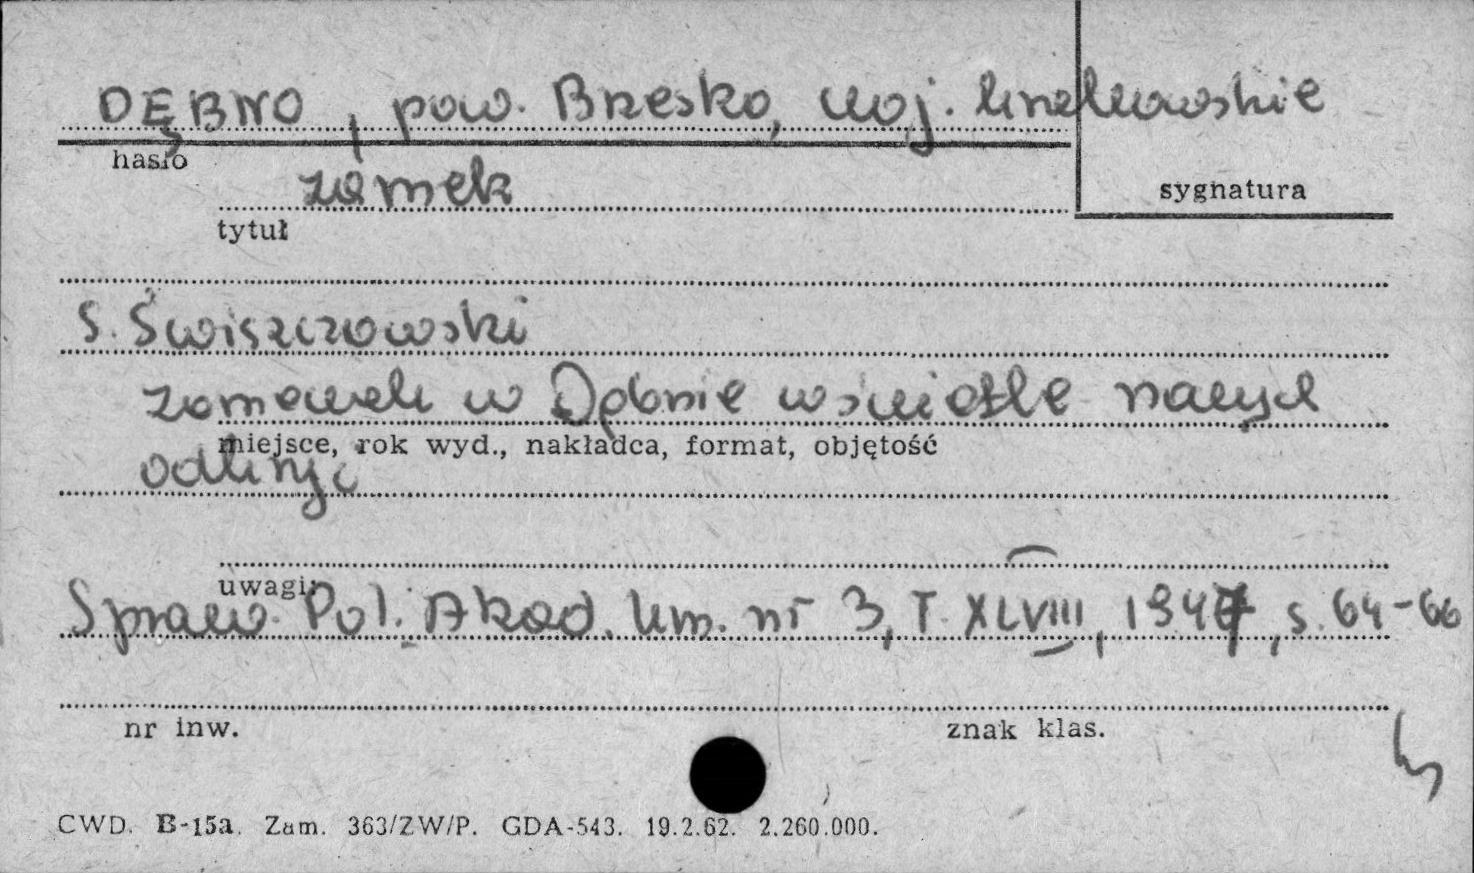 DĘBNO, pow. Brzesko, woj. krakowskie
hasło
zamek
sygnatura
tytuł
S. Świszczowski
zameczek w Dębnie w świetle nowych
miejsce, rok wyd., nakładca, format, objętość
odkryć
uwagi:
Spraw. Pol. Akad. Um. nr 3, T. XLVIII, 1947, s. 64-66
nr inw.
znak klas.
CWD. B-15a. Zam. 363/ZW/P. GDA-543. 19.2.62. 2.260.000.